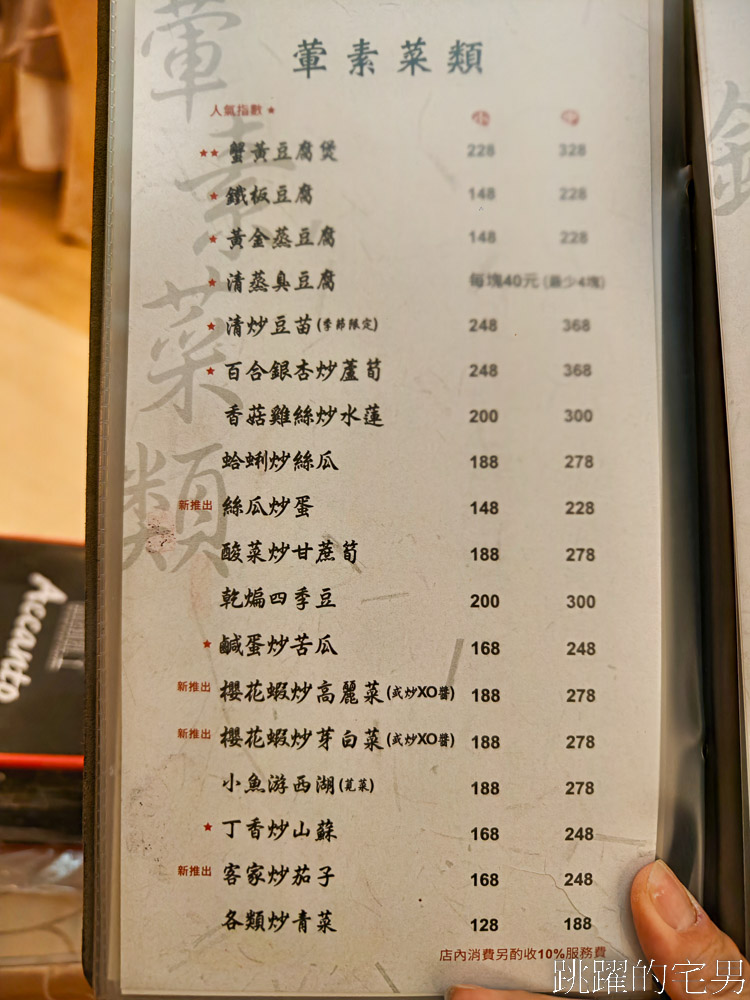 葷素菜類
葷素菜類
人氣指數 ★ 小 中
★★ 蟹黃豆腐煲 228 328
★ 鐵板豆腐 148 228
★ 黃金蒸豆腐 148 228
★ 清蒸臭豆腐 每塊40元 (最少4塊)
★ 清炒豆苗 (季節限定) 248 368
★ 百合銀杏炒蘆筍 248 368
香菇雞絲炒水蓮 200 300
蛤蜊炒絲瓜 188 278
新推出 絲瓜炒蛋 148 228
酸菜炒甘蔗筍 188 278
乾煸四季豆 200 300
★ 鹹蛋炒苦瓜 168 248
新推出 櫻花蝦炒高麗菜 (或炒XO醬) 188 278
新推出 櫻花蝦炒芽白菜 (或炒XO醬) 188 278
小魚游西湖 (莧菜) 188 278
★ 丁香炒山蘇 168 248
新推出 客家炒茄子 168 248
各類炒青菜 128 188
店內消費另酌收10%服務費
Accanto
跳躍的宅男